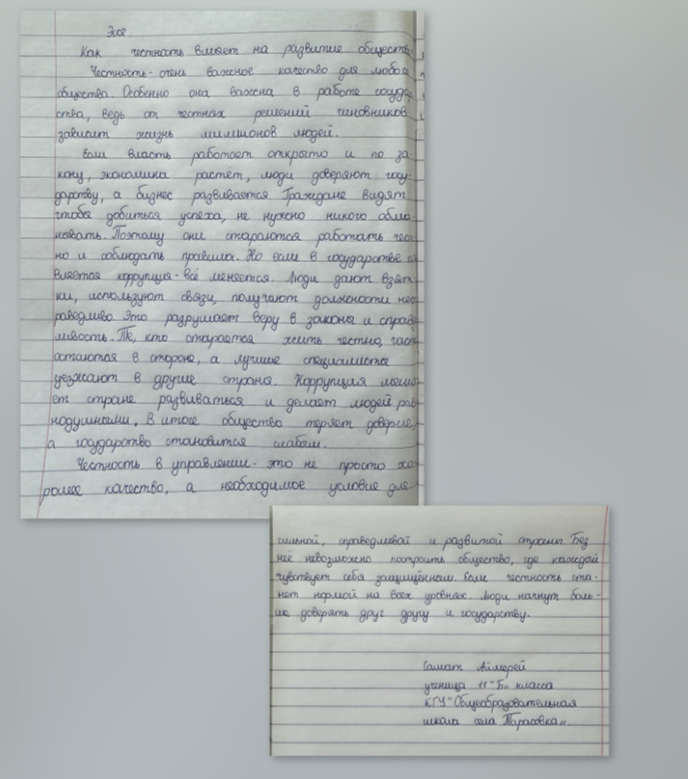 Эссе
Как честность влияет на развитие общества.
Честность - очень важное качество для любого
общества. Особенно она важна в работе государ-
ства, ведь от честных решений чиновников
зависит жизнь миллионов людей.
Если власть работает открыто и по за-
кону, экономика растёт, люди доверяют госу-
дарству, а бизнес развивается. Граждане видят,
чтобы добиться успеха, не нужно никого обма-
нывать. Поэтому они стараются работать чест-
но и соблюдать правила. Но если в государстве
вляется коррупция - всё меняется. Люди дают взят-
ки, используют связи, получают должности нес-
раведливо. Это разрушает веру в законы и справ
ливость. Те, кто старается жить честно, част
остаются в стороне, а лучшие специалисты
уезжают в другие страны. Коррупция меша-
ет стране развиваться и делает людей рав
нодушными. В итоге общество теряет доверие,
а государство становится слабым.
Честность в управлении - это не просто хо-
рошее качество, а необходимое условие для
сильной, справедливой и развитой страны. Без
неё невозможно построить общество, где каждый
чувствует себя защищённым. Если честность ста-
нет нормой на всех уровнях. люди начнут боль-
ше доверять друг другу и государству.
Самат Айлерей
ученица 11 "Б" класса
КГУ "Общеобразовательная
школа села Тарасовка".